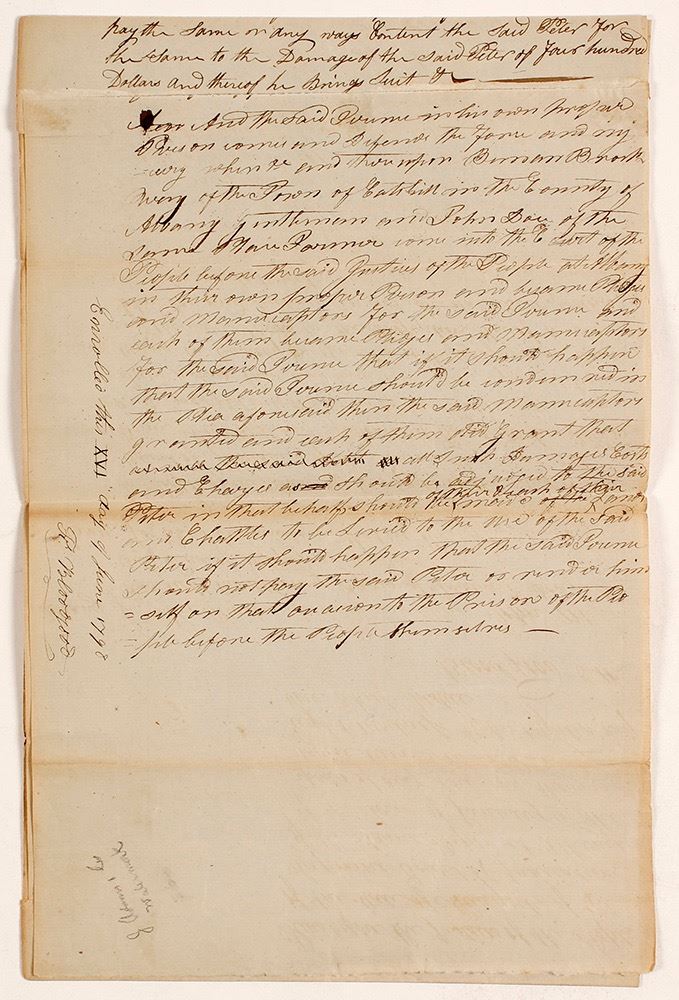 pay the Same or any ways Content the said Peter for
the Same to the Damage of the said Peter of four hundred
Dollars and thereof he Brings Suit &c
And the said in his own proper
Person comes and Defends the force and inj
=ury when &c and thereupon
of the Town of Catskill in the County of
Albany Gentleman and John Doe of the
Same Place Farmer come into the Court of the
People before the said Justices of the People at Albany
in their own proper Person and became Pledges
and Manucaptors for the said and
each of them became Pledges and Manucaptors
for the said that if it Should happen
that the said Should be condemned in
the Plea aforesaid then the said Manucaptors
granted and each of them did grant that
all Such Damages Costs
and Charges as Should be adjudged to the said
Peter in that behalf Should be made of their Lands
and Chattles to be Levied to the use of the Said
Peter if it Should happen that the said
Should not pay the said Peter or render him
=self on that occasion to the Prison of the Peo
=ple before the People themselves
Enrolled this XVI day of June 1798